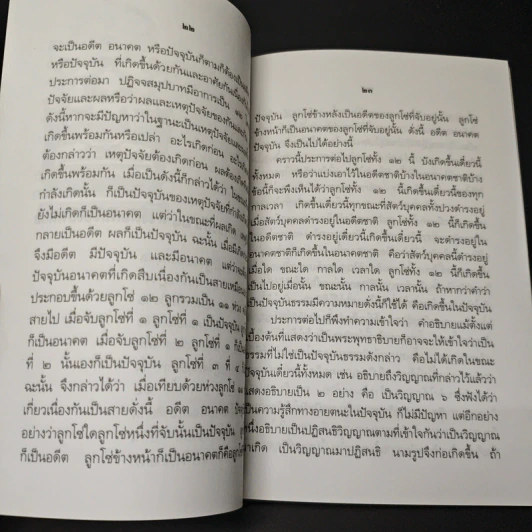 ๒๒
จะเป็นอดีต อนาคต หรือปัจจุบันก็ตามก็ต้องเป็น
หรือปัจจุบัน ที่เกิดขึ้นด้วยกันและอาศัยกัน
ประการต่อมา ปฏิจจสมุปบาทมีอาการเป็น ๑๒
ปัจจัยและผลหรือว่าผลและเหตุปัจจัยของกัน
ดังนี้หากจะมีปัญหาว่าในฐานะเป็นเหตุปัจจัย
เกิดขึ้นพร้อมกันหรือเปล่า อะไรเกิดก่อน
ต้องกล่าวว่า เหตุปัจจัยต้องเกิดก่อน ผลต้อง
เกิดขึ้นก่อน เมื่อเป็นดังนี้ก็กล่าวได้ว่า
กำลังเกิดนั้น ก็เป็นปัจจุบันของเหตุปัจจัยที่
ยังไม่เกิดก็เป็นอนาคต แต่ว่าในขณะที่ผลเกิด
กลายเป็นอดีต ผลก็เป็นปัจจุบัน ฉะนั้น
จึงมีอดีต มีปัจจุบัน และมีอนาคต
ปัจจุบันอนาคตที่เกิดสืบเนื่องกันเป็นสาย
ประกอบขึ้นด้วยลูกโซ่ ๑๒ ลูกรวมเป็น ๑๑ ห่วง
สายไป เมื่อจับลูกโซ่ที่ ๑ ลูกโซ่ที่ ๑ เป็นปัจจุบัน
ก็เป็นอนาคต เมื่อจับลูกโซ่ที่ ๒ ลูกที่ ๑ ก็เป็น
ที่ ๒ นั้นเองก็เป็นปัจจุบัน ลูกโซ่ที่ ๓ ที่ ๔
ฉะนั้น จึงกล่าวได้ว่า เมื่อเทียบด้วยห่วงลูกโซ่
เกี่ยวเนื่องกันเป็นสายดั่งนี้ อดีต อนาคต
อย่างว่าลูกโซ่ใดลูกโซ่หนึ่งที่จับนั้นเป็นปัจจุบัน
ก็เป็นอดีต ลูกโซ่ข้างหน้าก็เป็นอนาคต
๒๓
ปัจจุบัน ลูกโซ่ข้างหลังเป็นอดีตของลูกโซ่ที่จับอยู่นั้น ลูกโซ่
ข้างหน้าก็เป็นอนาคตของลูกโซ่ที่จับอยู่นั้น ดั่งนี้ อดีต อนาคต
ปัจจุบัน จึงเป็นไปได้อย่างนี้
คราวนี้ประการต่อไปลูกโซ่ทั้ง ๑๒ นี้ บังเกิดขึ้นเดี๋ยวนี้
ทั้งหมด หรือว่าแบ่งเอาไว้ในอดีตชาติบ้างในอนาคตชาติบ้าง
ข้อนี้ก็จะพึงเห็นได้ว่าลูกโซ่ทั้ง ๑๒ นี้เกิดขึ้นเดี๋ยวนี้ของทุก
กาลเวลา เกิดขึ้นเดี๋ยวนี้ทุกขณะที่สัตว์บุคคลทั้งปวงดำรงอยู่
เมื่อสัตว์บุคคลดำรงอยู่ในอดีตชาติ ลูกโซ่ทั้ง ๑๒ นี้ก็เกิดขึ้น
ในอดีตชาติ ดำรงอยู่เดี๋ยวนี้เกิดขึ้นเดี๋ยวนี้ จะดำรงอยู่ใน
อนาคตชาติก็เกิดขึ้นในอนาคตชาติ คือว่าสัตว์บุคคลนี้ดำรงอยู่
เมื่อใด ขณะใด กาลใด เวลาใด ลูกโซ่ทั้ง ๑๒ นี้ก็เกิดขึ้น
เป็นไปอยู่เมื่อนั้น ขณะนั้น กาลนั้น เวลานั้น ถ้าหากว่าคำว่า
เป็นปัจจุบันธรรมมีความหมายดั่งนี้ก็ใช้ได้ คือเกิดขึ้นในปัจจุบัน
ประการต่อไปก็พึงทำความเข้าใจว่า คำอธิบายแม้ตั้งแต่
เบื้องต้นที่แสดงว่าเป็นพระพุทธาธิบายก็อาจจะให้เข้าใจว่าเป็น
ธรรมที่ไม่ใช่เป็นปัจจุบันธรรมดังกล่าว คือไม่ได้เกิดในขณะ
ปัจจุบันเดี๋ยวนี้ทั้งหมด เช่น อธิบายถึงวิญญาณที่กล่าวไว้แล้วว่า
แสดงอธิบายเป็น ๒ อย่าง คือ เป็นวิญญาณ ๖ ซึ่งฟังได้ว่า
เป็นความรู้สึกทางอายตนะในปัจจุบัน ก็ไม่มีปัญหา แต่อีกอย่าง
หนึ่งอธิบายเป็นปฏิสนธิวิญญาณตามที่เข้าใจกันว่าเป็นวิญญาณ
มาเกิด เป็นวิญญาณมาปฏิสนธิ นามรูปจึงก่อเกิดขึ้น ถ้า